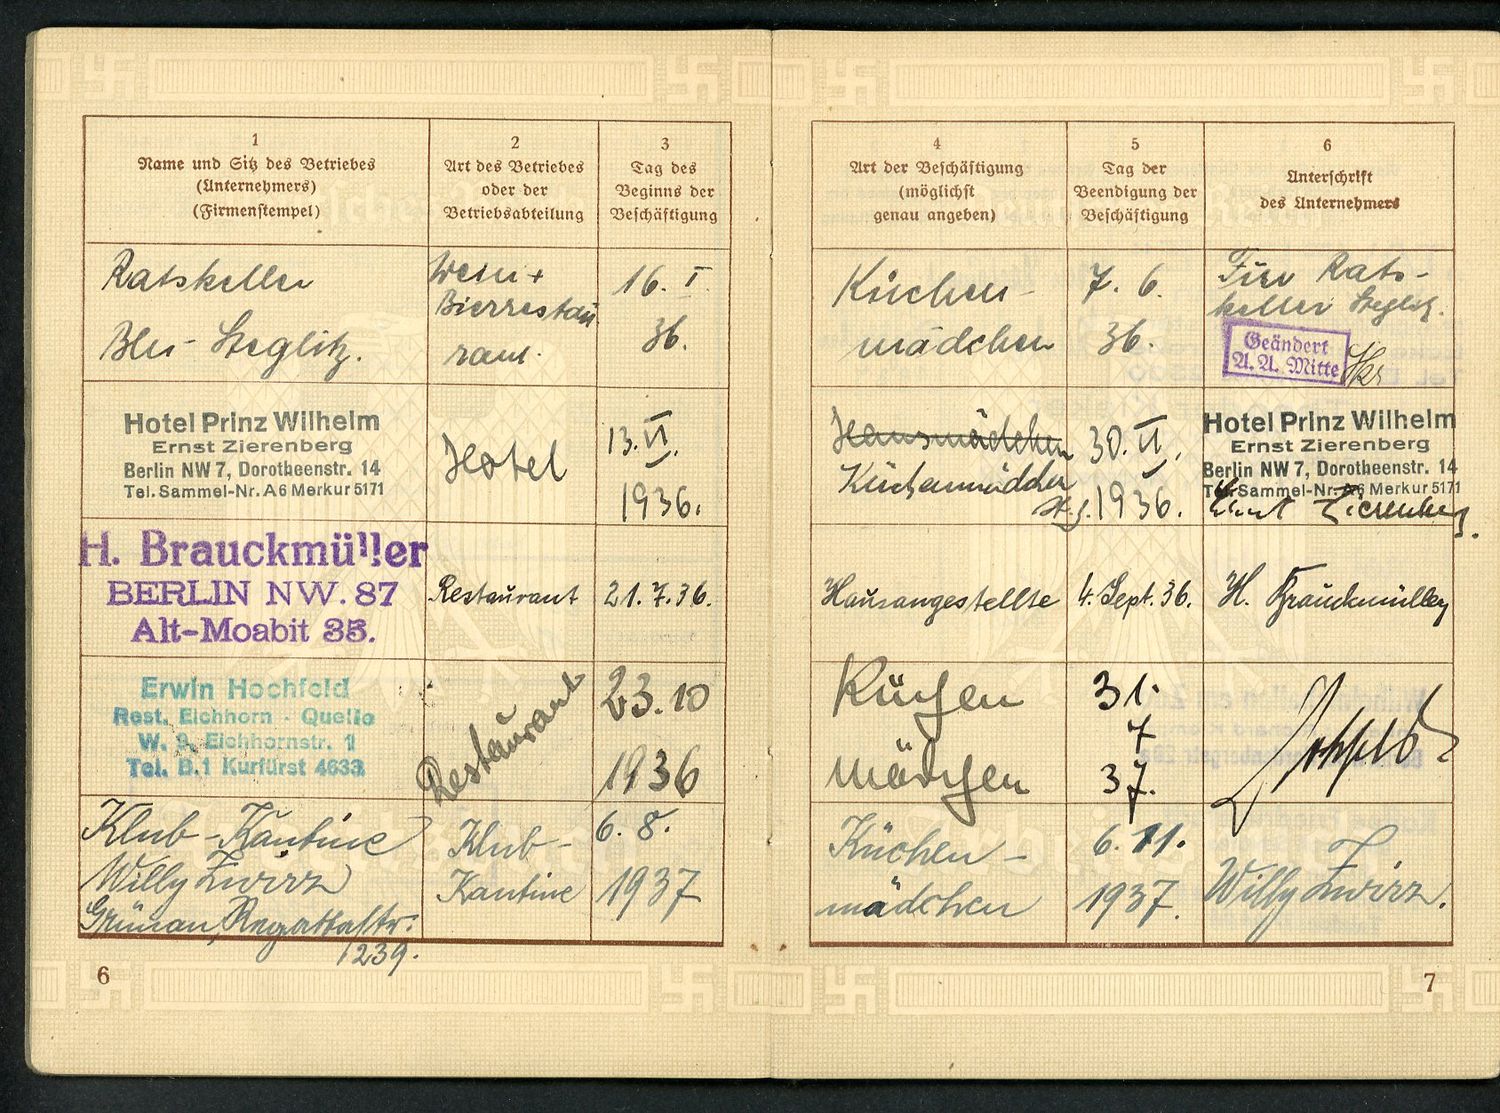 1
Name und Sitz des Betriebes
(Unternehmers)
(Firmenstempel)
2
Art des Betriebes
oder der
Betriebsabteilung
3
Tag des
Beginns der
Beschäftigung
Ratskeller
Bln - Steglitz.
Wein +
Bierrestau
rant.
16. I.
36.
Hotel Prinz Wilhelm
Ernst Zierenberg
Berlin NW 7, Dorotheenstr. 14
Tel. Sammel-Nr. A6 Merkur 5171
Hotel
13. VI.
1936.
H. Brauckmüller
BERLIN NW. 87
Alt-Moabit 35.
Restaurant
21.7.36.
Erwin Hochfeld
Rest. Eichhorn - Quelle
W. 9, Eichhornstr. 1
Tel. B.1 Kurfürst 4633
Restaurant
23.10
1936
Klub - Kantine
Willy Zwirz
Grünau, Regattastr.
1239.
Klub -
Kantine
6. 8.
1937
6
4
Art der Beschäftigung
(möglichst
genau angeben)
5
Tag der
Beendigung der
Beschäftigung
6
Unterschrift
des Unternehmers
Küchen -
mädchen
7. 6.
36.
Für Rats-
keller Steglitz.
Geändert
A. A. Mitte
Hausmädchen
Küchenmädchen
30. VI.
1936.
Hotel Prinz Wilhelm
Ernst Zierenberg
Berlin NW 7, Dorotheenstr. 14
Tel. Sammel-Nr. A6 Merkur 5171
Ernst Zierenberg.
Hausangestellte
4. Sept. 36.
H. Brauckmüller
Küchen
mädchen
31.
7
37.
Hochfeld
Küchen -
mädchen
6. 11.
1937.
Willy Zwirz.
7